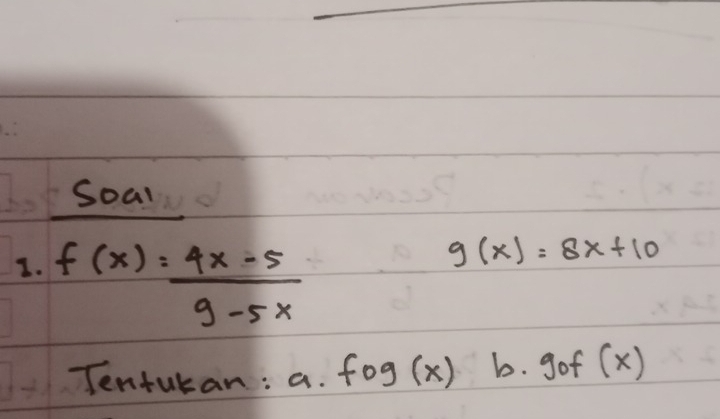 Soal
1. f(x) = 4x - 5 g(x) = 8x + 10
9 - 5x
Tentukan : a. fog (x) b. gof (x)